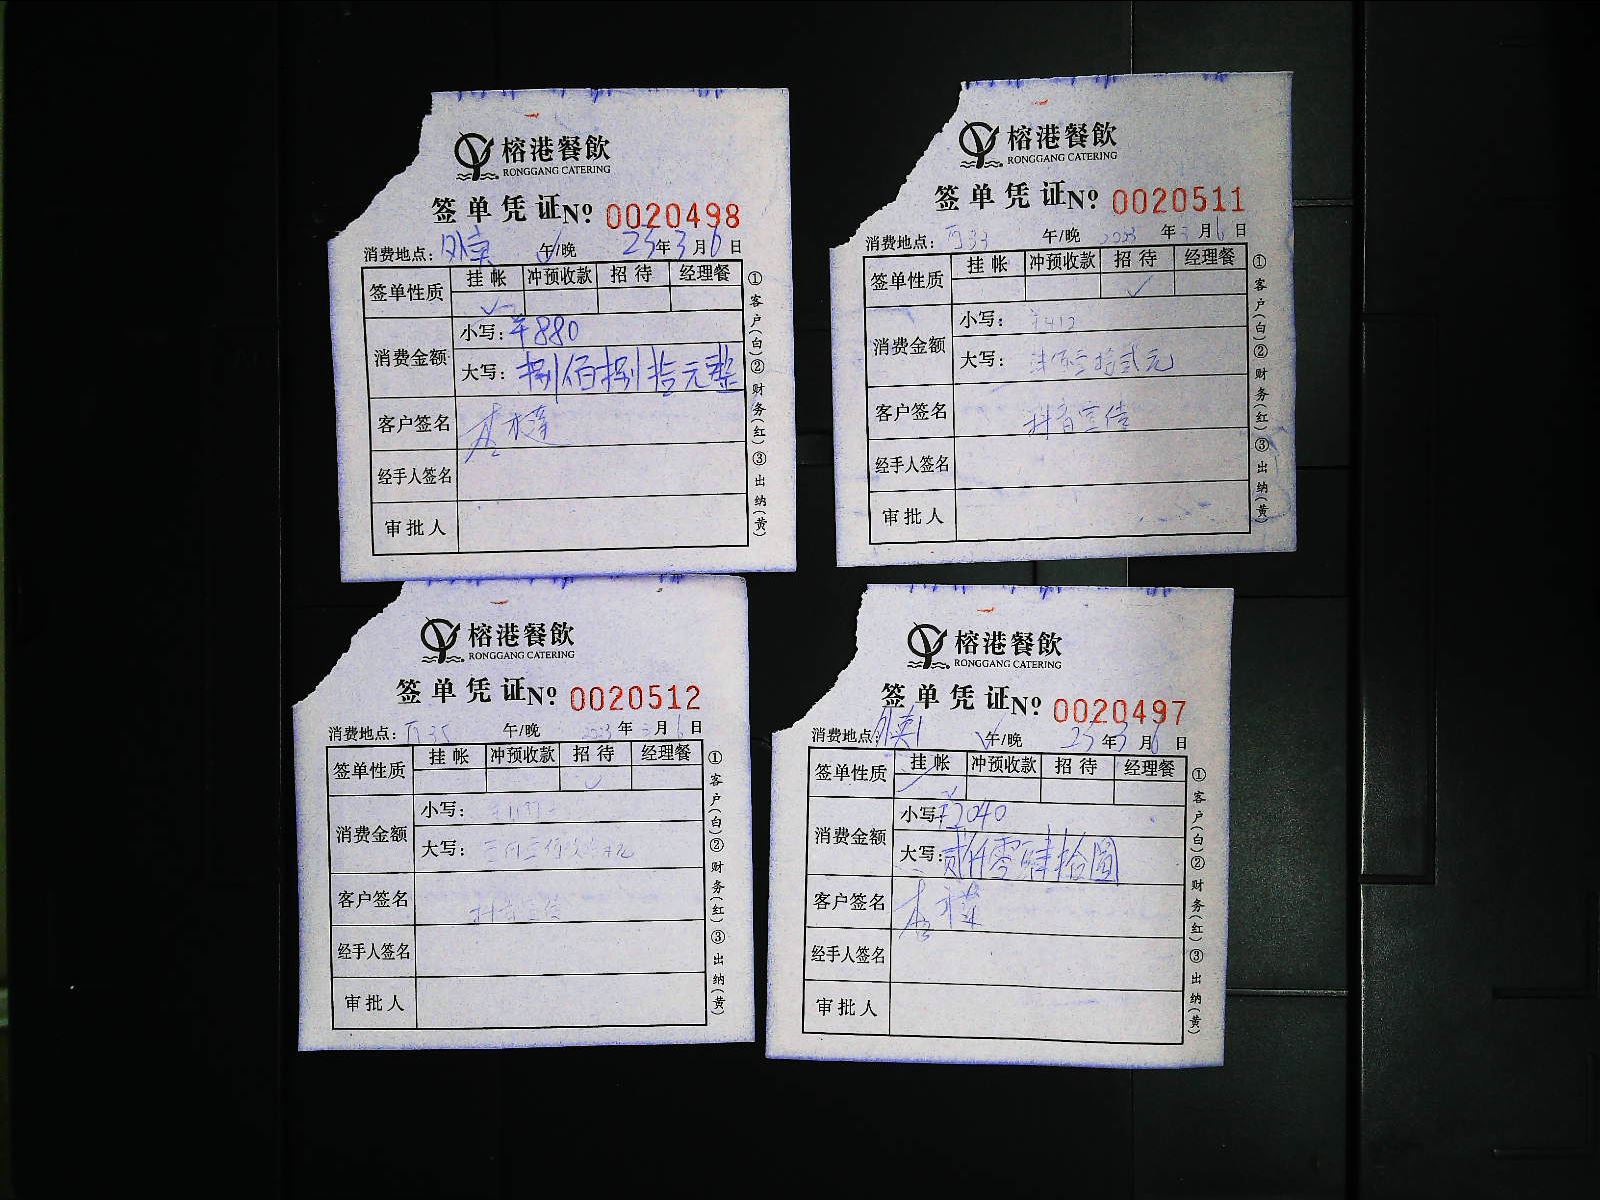 榕港餐飲
RONGGANG CATERING
签单凭证 Nº 0020498
消费地点：外卖 午/晚 23年3月6日
签单性质 挂帐 冲预收款 招待 经理餐
✓
消费金额 小写：¥880
大写：捌佰捌拾元整
客户签名
经手人签名
审批人
①客户(白)②财务(红)③出纳(黄)
榕港餐飲
RONGGANG CATERING
签单凭证 Nº 0020511
消费地点： 午/晚 2023年3月6日
签单性质 挂帐 冲预收款 招待 经理餐
✓
消费金额 小写：
大写：
客户签名 抖音宣传
经手人签名
审批人
①客户(白)②财务(红)③出纳(黄)
榕港餐飲
RONGGANG CATERING
签单凭证 Nº 0020512
消费地点： 午/晚 2023年3月6日
签单性质 挂帐 冲预收款 招待 经理餐
✓
消费金额 小写：
大写：
客户签名 抖音宣传
经手人签名
审批人
①客户(白)②财务(红)③出纳(黄)
榕港餐飲
RONGGANG CATERING
签单凭证 Nº 0020497
消费地点 外卖 午/晚 23年3月6日
签单性质 挂帐 冲预收款 招待 经理餐
✓
消费金额 小写：¥2040
大写：贰仟零肆拾圆
客户签名
经手人签名
审批人
①客户(白)②财务(红)③出纳(黄)